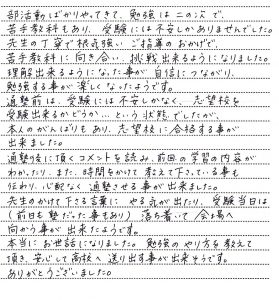 部活動ばかりやってきて、勉強は二の次で
苦手教科もあり、受験には不安しかありませんでした。
先生の丁寧で根気強いご指導のおかげで、
苦手教科に向き合い、挑戦出来るようになりました。
理解出来るようになった事が自信につながり、
勉強する事が楽しくなったようです。
通塾前は、受験には不安しかなく、志望校を
受験出来るかどうか…という状態でしたが、
本人のがんばりもあり、志望校に合格する事が
出来ました。
通塾後に頂くコメントを読み、前回の学習の内容が
わかったり、また、時間をかけて教えて下さっている事も
伝わり、心配なく通塾させる事が出来ました。
先生のかけて下さる言葉にやる気が出たり、受験当日は
(前日も塾だった事もあり)落ち着いて会場へ
向かう事が出来たようです。
本当にお世話になりました。勉強のやり方を教えて
頂き、安心して高校へ送り出す事が出来そうです。
ありがとうございました。